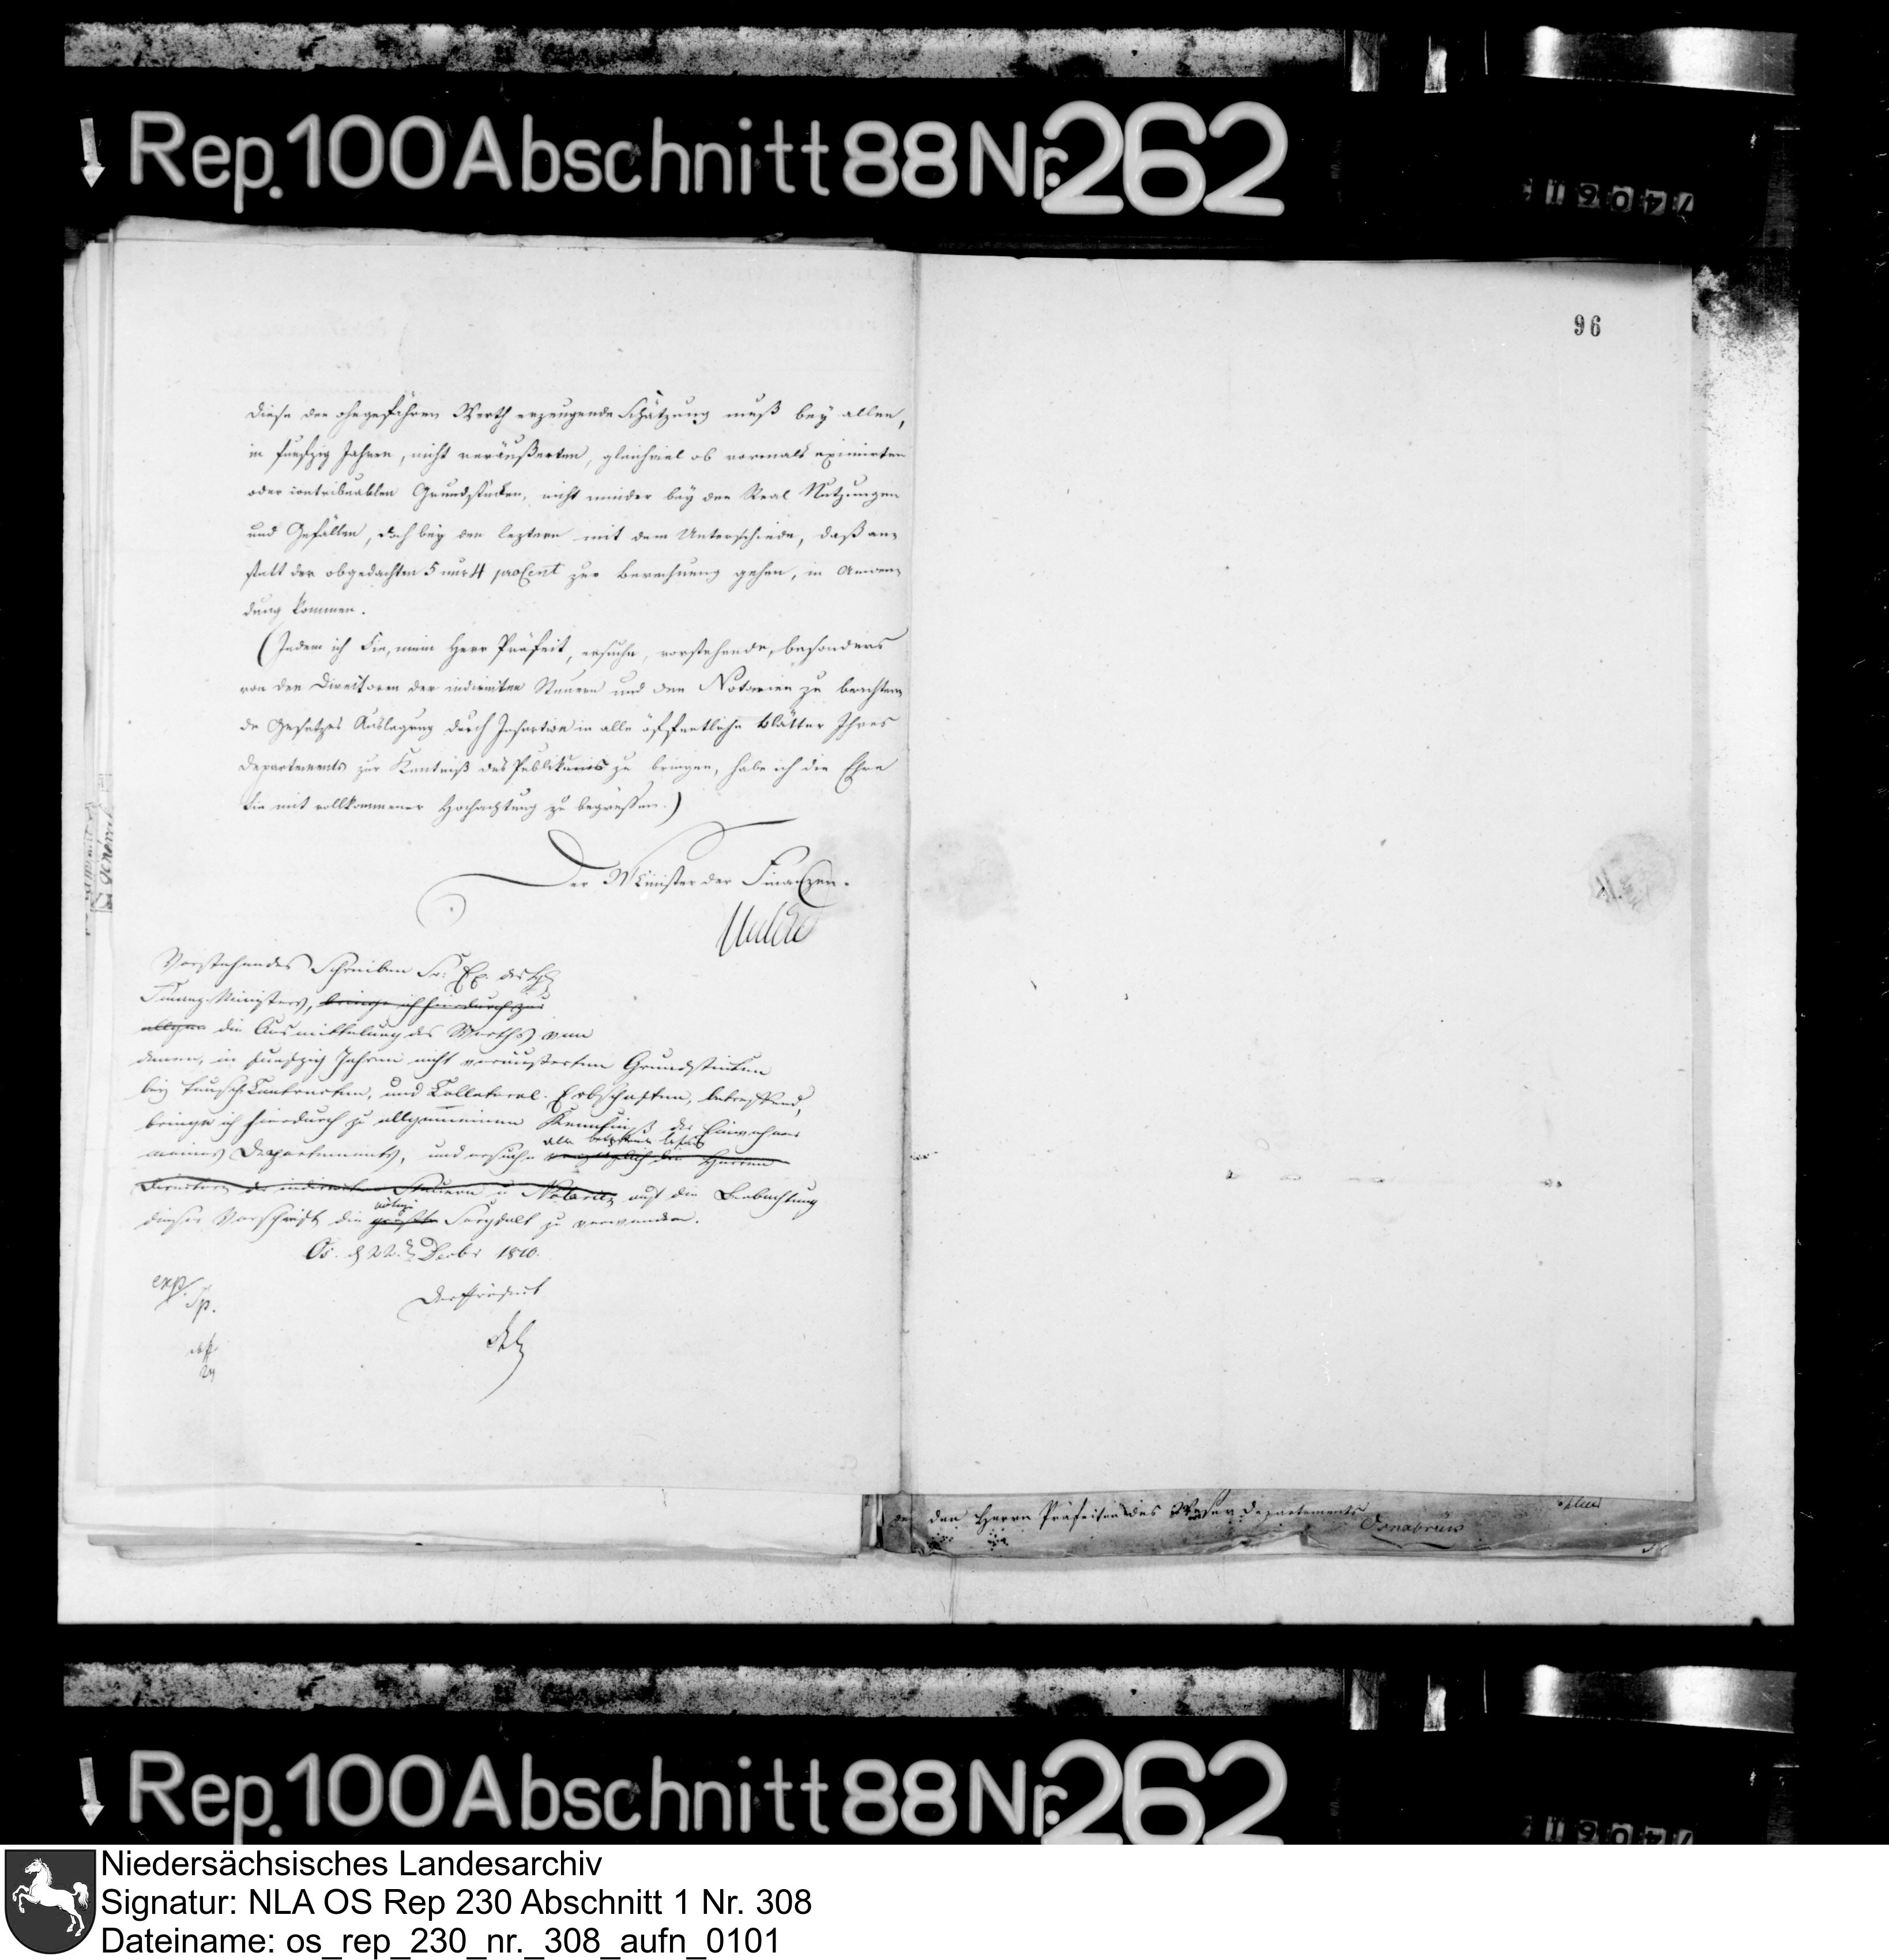 Rep. 100 Abschnitt 88 Nr. 262
96
Diese den ohngefähren Werth erzeugende Schätzung muß bey allen,
in funfzig Jahren, nicht veräußerten, gleichviel ob vormals eximirten
oder contribuablen Grundstücken, nicht minder bey den Real Nutzungen
und Gefällen, doch bey den leztern mit dem Unterschiede, daß an-
statt der obgedachten 5 nur 4 proCent zur Berechnung gehen, in Anwen-
dung kommen.
(Indem ich Sie, mein Herr Präfect, ersuche, vorstehende, besonders
von den Directoren der indirecten Steuern und den Notarien zu beachten-
de Gesetzes Auslegung durch Insertion in alle öffentliche Blätter Ihres
Departements zur Kentniß des Publikums zu bringen, habe ich die Ehre
Sie mit vollkommener Hochachtung zu begrüssen.)
Der Minister der Finanzen.
Vorstehendes Schreiben Sr. Ex. des H.
Finanz-Ministers, bringe ich hierdurch zur
allgem die Ausmittelung des Werths von
denen, in funfzig Jahren nicht veräusserten Grundstücken
bey Tausch-Contracten, und Collateral-Erbschaften, betreffend,
bringe ich hierdurch zu allgemeinen Kenntniß der Einwohner
alle
meines Departements, und ersuche vorzüglich die Herren
Directoren der indirecten Steuern u Notarien auf die Beobachtung
nötige
dieser Vorschrift die größte Sorgfalt zu verwenden.
Os. d 22. Decbr 1810.
exp.
Der Präfect
den Herrn Präfecten des Weser Departements
Osnabrück
Rep. 100 Abschnitt 88 Nr. 262
Niedersächsisches Landesarchiv
Signatur: NLA OS Rep 230 Abschnitt 1 Nr. 308
Dateiname: os_rep_230_nr._308_aufn_0101